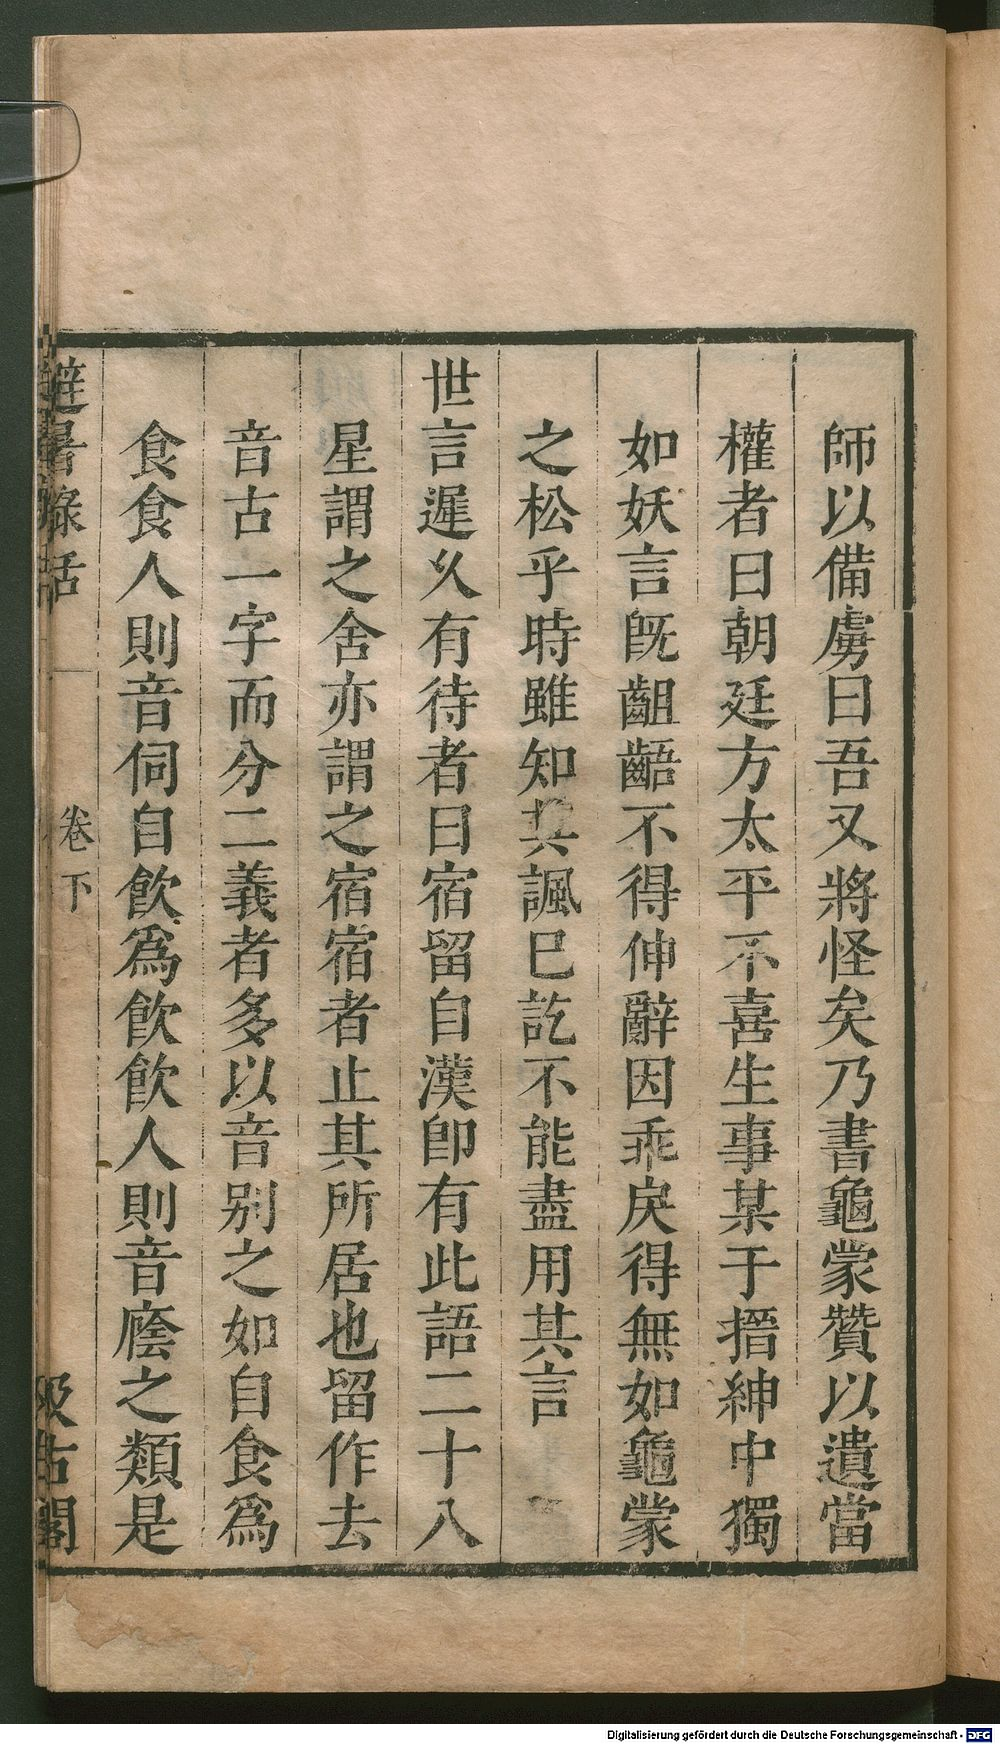 師以備虜曰吾又將怪矣乃書龜蒙贊以遺當
權者曰朝廷方太平不喜生事某于搢紳中獨
如妖言旣齟齬不得伸辭因乖戾得無如龜蒙
之松乎時雖知其諷已訖不能盡用其言
世言遲乆有待者曰宿留自漢卽有此語二十八
星謂之舍亦謂之宿宿者止其所居也留作去
音古一字而分二義者多以音别之如自食爲
食食人則音伺自飮爲飮飮人則音廕之類是
避暑錄話
卷下
汲古閣
Digitalisierung gefördert durch die Deutsche Forschungsgemeinschaft - DFG